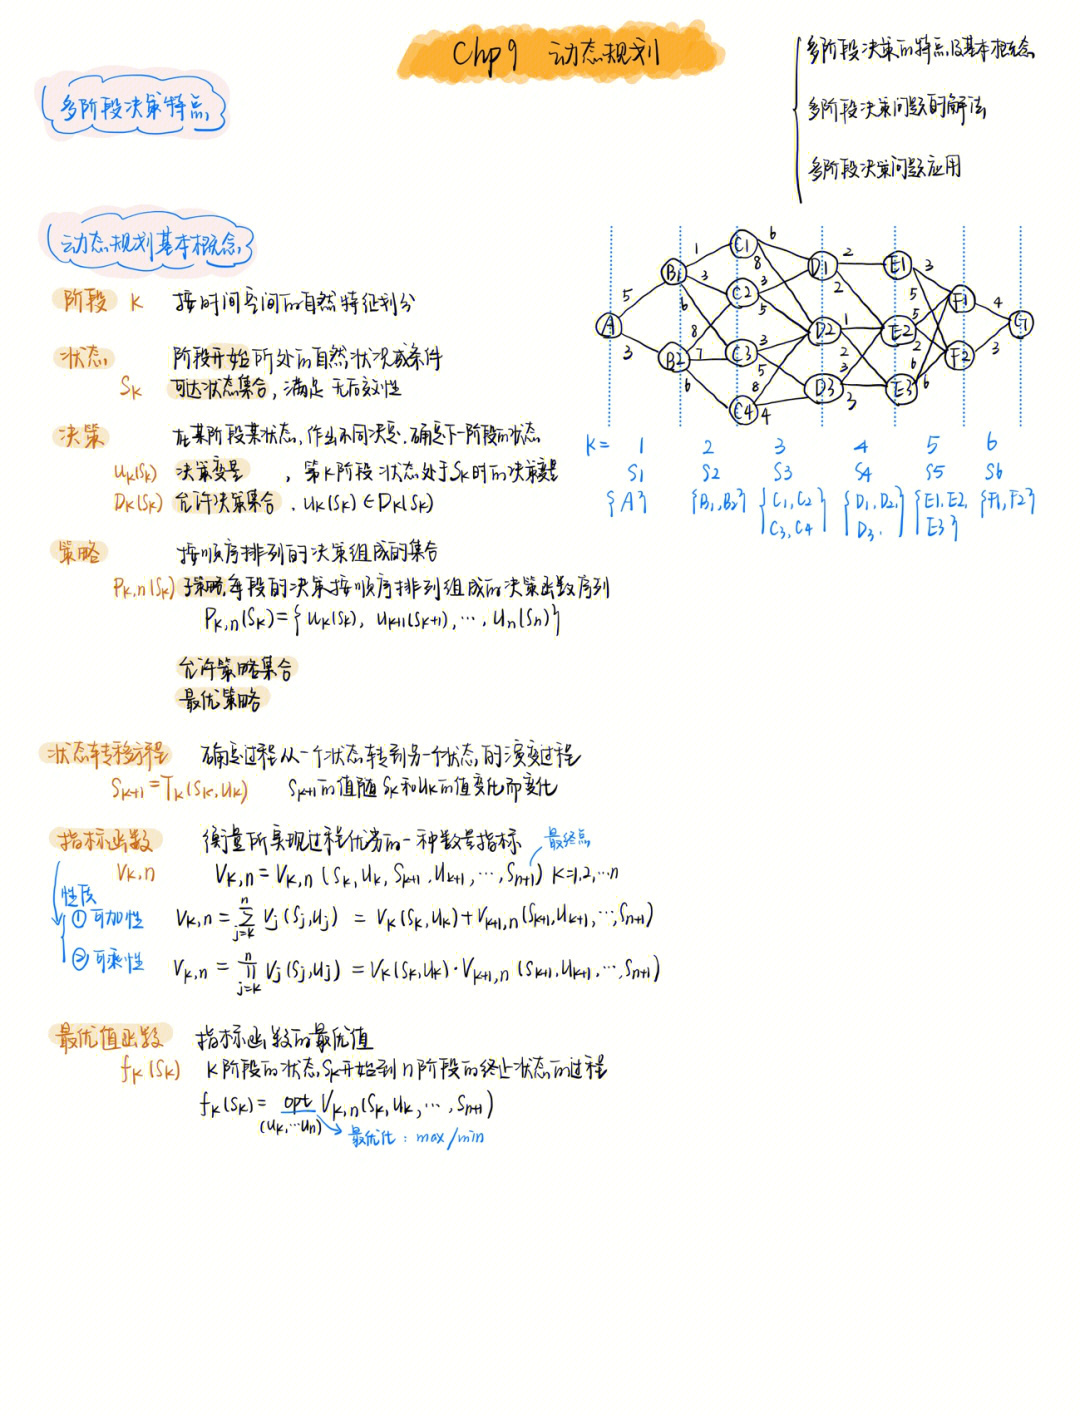 Chp 9 动态规划
多阶段决策的特点及基本概念
多阶段决策问题的解法
多阶段决策问题应用
多阶段决策特点
动态规划基本概念
阶段 K 按时间空间的自然特征划分
状态 阶段开始所处的自然状况或条件
Sk 可达状态集合,满足无后效性
决策 在某阶段某状态,作出不同决定,确定下一阶段的状态
uk(Sk) 决策变量 ,第K阶段状态处于Sk时的决策变量
Dk(Sk) 允许决策集合,uk(Sk)∈Dk(Sk)
策略 按顺序排列的决策组成的集合
Pk,n(Sk) 子策略,每段的决策按顺序排列组成的决策函数序列
Pk,n(Sk)={uk(Sk), uk+1(Sk+1), ⋯, un(Sn)}
允许策略集合
最优策略
A B1 B2 C1 C2 C3 C4 D1 D2 D3 E1 E2 E3 F1 F2 G
5 3
1 3 6 8 7 6
6 8 3 5 3 5 8 4
2 2 1 2 3 3
3 5 5 2 6 6
4 3
K= 1 2 3 4 5 6
S1 S2 S3 S4 S5 S6
{A} {B1,B2} {C1,C2 {D1,D2, {E1,E2, {F1,F2}
C3,C4} D3} E3}
状态转移方程 确定过程从一个状态转到另一个状态的演变过程
Sk+1=Tk(Sk,uk) Sk+1的值随Sk和uk的值变化而变化
指标函数 衡量所实现过程优劣的一种数量指标 最终点
Vk,n Vk,n=Vk,n(Sk,uk,Sk+1,uk+1,⋯,Sn+1) K=1,2,⋯n
性质
① 可加性 Vk,n=∑j=k n Vj(Sj,uj) = Vk(Sk,uk)+Vk+1,n(Sk+1,uk+1,⋯,Sn+1)
② 可乘性 Vk,n=∏j=k n Vj(Sj,uj) = Vk(Sk,uk)·Vk+1,n(Sk+1,uk+1,⋯,Sn+1)
最优值函数 指标函数的最优值
fk(Sk) K阶段的状态Sk开始到n阶段的终止状态的过程
fk(Sk)= opt Vk,n(Sk,uk,⋯,Sn+1)
(uk,⋯un) 最优化:max/min